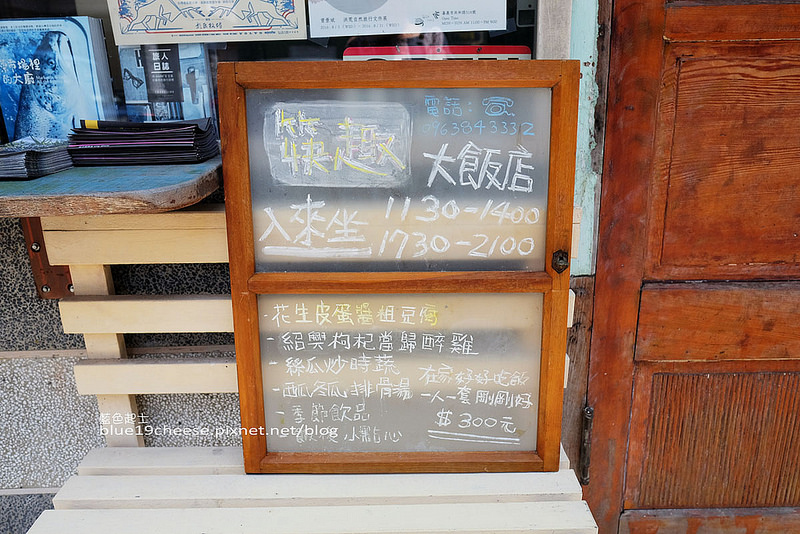 電話：
0963843332
快趣
大飯店
入來坐
1130-1400
1730-2100
-花生皮蛋醬粗豆腐
-紹興枸杞當歸醉雞
-絲瓜炒時蔬
-西瓜冬瓜排骨湯
-季節飲品
-飯後小點心
在家好好吃飯
一人一套剛剛好
$300元
旅人
日誌
市場裡
的大廟
藍色起士
blue19cheese.pixnet.net/blog